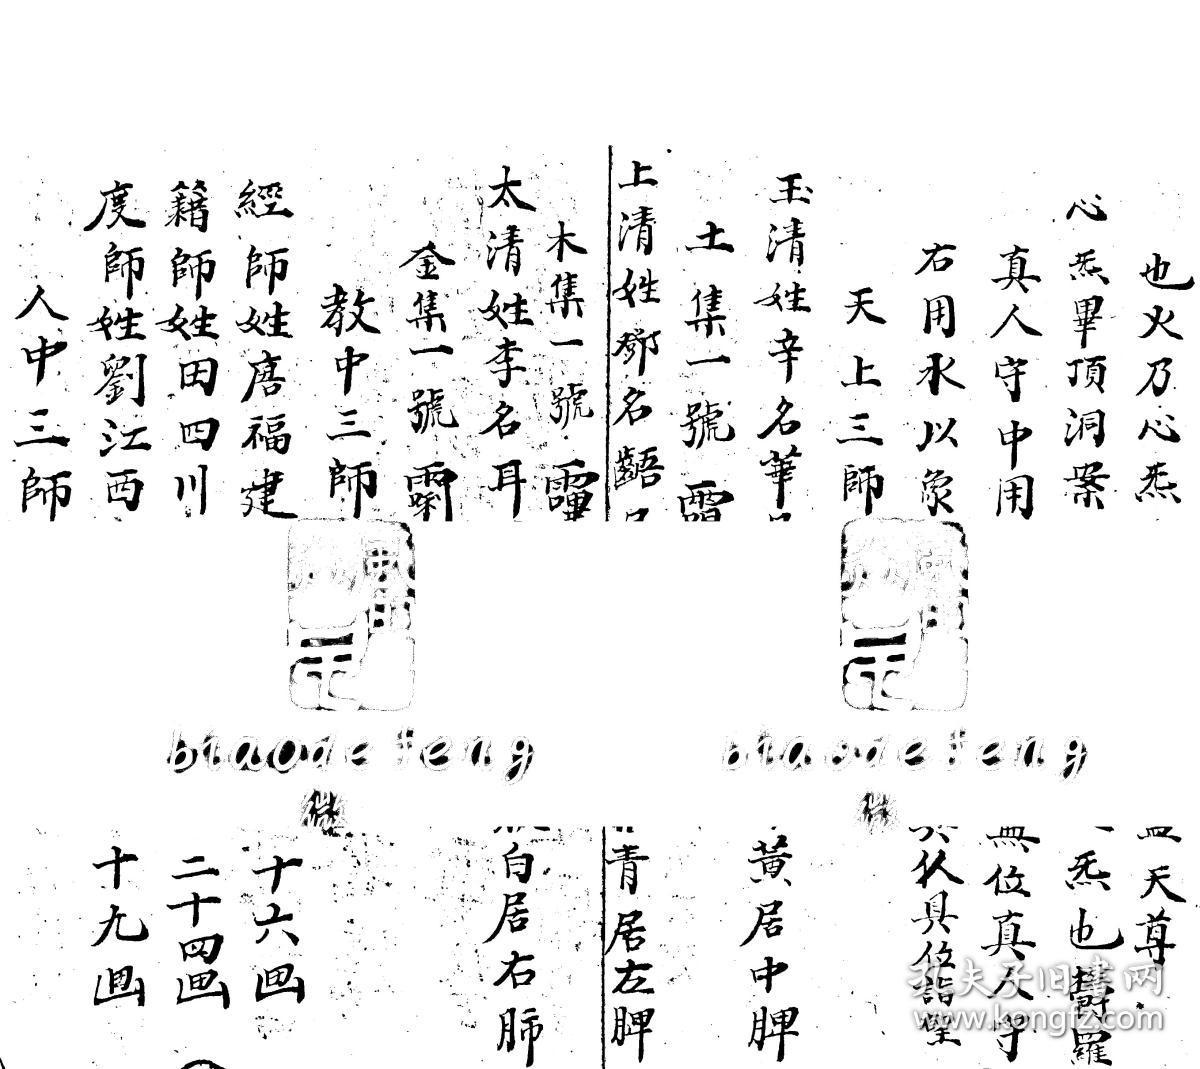 也火乃心炁
心炁畢頂洞案
真人守中用
右用水以象
天上三師
玉清姓辛名華
土集一號
上清姓鄧名
木集一號
太清姓李名耳
金集一號
教中三師
經師姓唐福建
籍師姓田四川
度師姓劉江西
人中三師
biaodefeng
biaodefeng
天尊
炁也 羅
位真人守
具位詣
黃居中脾
青居左脾
白居右肺
十六画
二十四画
十九画
孔夫子旧書网
www.kongfz.com